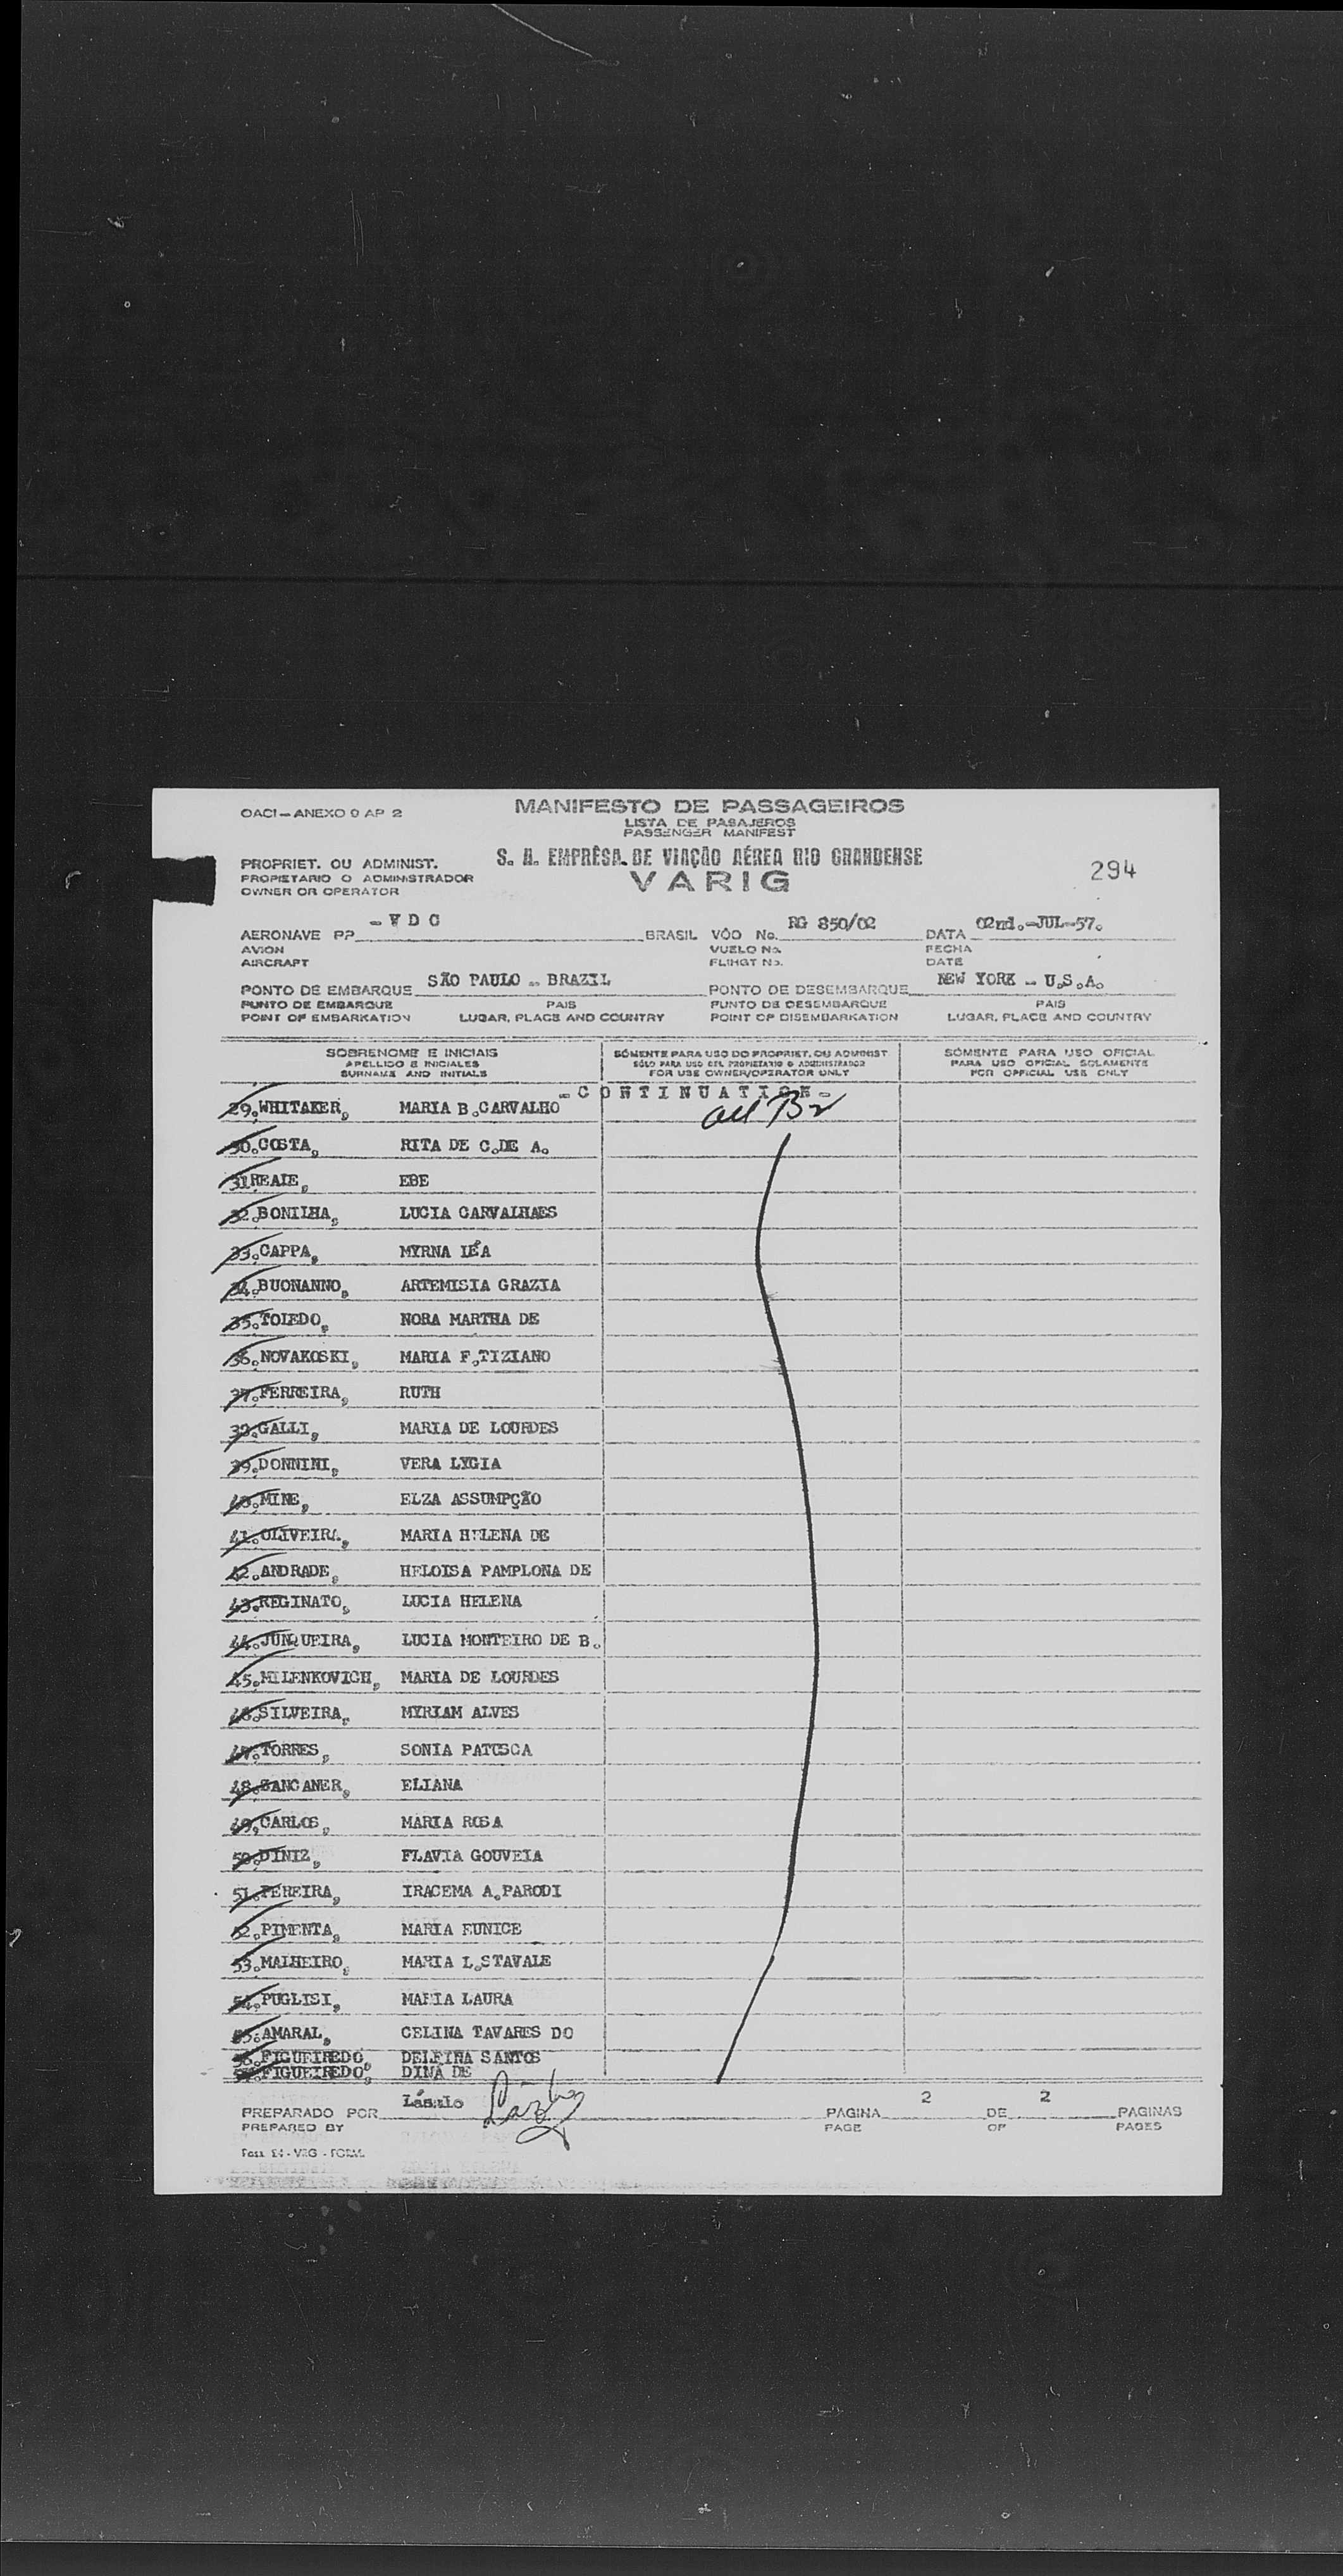 OACI - ANEXO 9 AP 2
MANIFESTO DE PASSAGEIROS
LISTA DE PASAJEROS
PASSENGER MANIFEST
PROPRIET. OU ADMINIST.
PROPIETARIO O ADMINISTRADOR
OWNER OR OPERATOR
S. A. EMPRÊSA DE VIAÇÃO AÉREA RIO GRANDENSE
VARIG
294
AERONAVE PP - V D O BRASIL VÔO No. RG 850/02 DATA 02nd.-JUL-57.
AVION VUELO No. FECHA
AIRCRAFT FLIHGT No. DATE
PONTO DE EMBARQUE SÃO PAULO - BRAZIL PONTO DE DESEMBARQUE NEW YORK - U.S.A.
PUNTO DE EMBARQUE PAIS PUNTO DE DESEMBARQUE PAIS
POINT OF EMBARKATION LUGAR, PLACE AND COUNTRY POINT OF DISEMBARKATION LUGAR, PLACE AND COUNTRY
SOBRENOME E INICIAIS SÓMENTE PARA USO DO PROPRIET. OU ADMINIST SÓMENTE PARA USO OFICIAL
APELLIDO E INICIALES SÓLO PARA USO DEL PROPIETARIO O ADMINISTRADOR PARA USO OFICIAL SOLAMENTE
SURNAME AND INITIALS FOR USE OWNER/OPERATOR ONLY FOR OFFICIAL USE ONLY
- C O N T I N U A T I O N -
29. WHITAKER, MARIA B. CARVALHO all Br
30. COSTA, RITA DE C.DE A.
31 REALE, EBE
32. BONILHA, LUCIA CARVALHAES
33. CAPPA, MYRNA LÉA
34. BUONANNO, ARTEMISIA GRAZIA
35. TOLEDO, NORA MARTHA DE
36. NOVAKOSKI, MARIA F.TIZIANO
37. FERREIRA, RUTH
38. GALLI, MARIA DE LOURDES
39. DONNINI, VERA LYGIA
40. MINE, ELZA ASSUMPÇÃO
41. OLIVEIRA, MARIA HELENA DE
42. ANDRADE, HELOISA PAMPLONA DE
43. REGINATO, LUCIA HELENA
44. JUNQUEIRA, LUCIA MONTEIRO DE B.
45. MILENKOVICH, MARIA DE LOURDES
46. SILVEIRA, MYRIAM ALVES
47. TORRES, SONIA PATUSCA
48. SANCANER, ELIANA
49. CARLOS, MARIA ROSA
50. DINIZ, FLAVIA GOUVEIA
51. PEREIRA, IRACEMA A.PARODI
52. PIMENTA, MARIA EUNICE
53. MALHEIRO, MARIA L.STAVALE
54. PUGLISI, MARIA LAURA
55. AMARAL, CELINA TAVARES DO
56. FIGUEIREDO, DELFINA SANTOS
57. FIGUEIREDO, DINÁ DE
PREPARADO POR László PAGINA 2 DE 2 PAGINAS
PREPARED BY PAGE OF PAGES